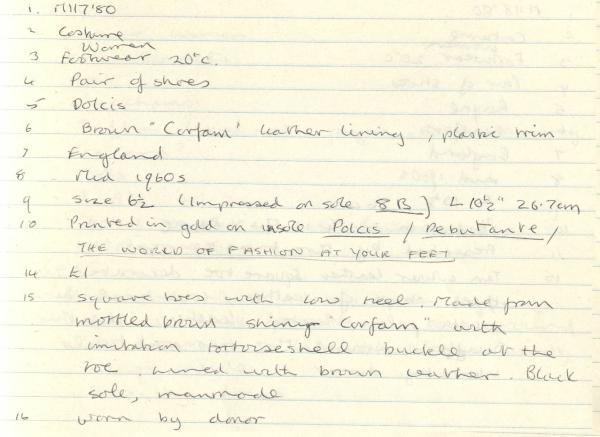 1. M117'80
2 Costume
Women
3 Footwear 20thC.
4 Pair of shoes
5 Dolcis
6 Brown "Corfam" leather lining, plastic trim
7 England
8 Mid 1960s
9 Size 6½ (Impressed on sole 8B) L 10½" 26.7cm
10 Printed in gold on insole Dolcis / Debutante /
THE WORLD OF FASHION AT YOUR FEET
14 £1
15 Square toes with low heel. Made from
mottled brown shiny "Corfam" with
imitation tortoiseshell buckle at the
toe, lined with brown leather. Black
sole, manmade
16 worn by donor